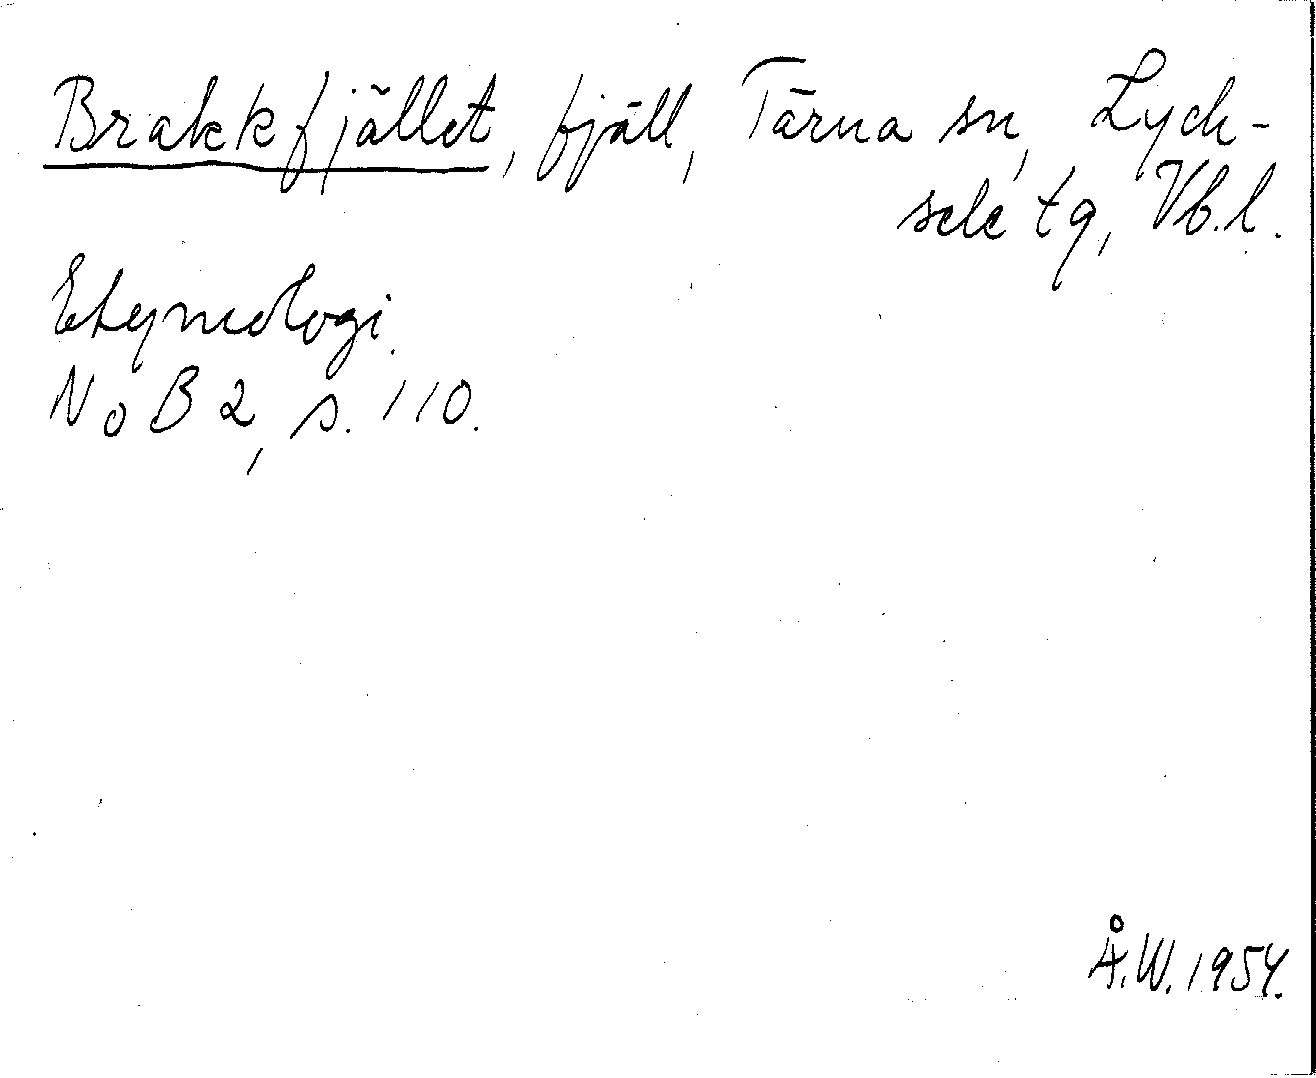 Brakkfjället, fjäll, Tärna sn, Lych-
sele tg, Vb.l.
Etymologi.
NoB 2, s. 110.
Å.W. 1954.